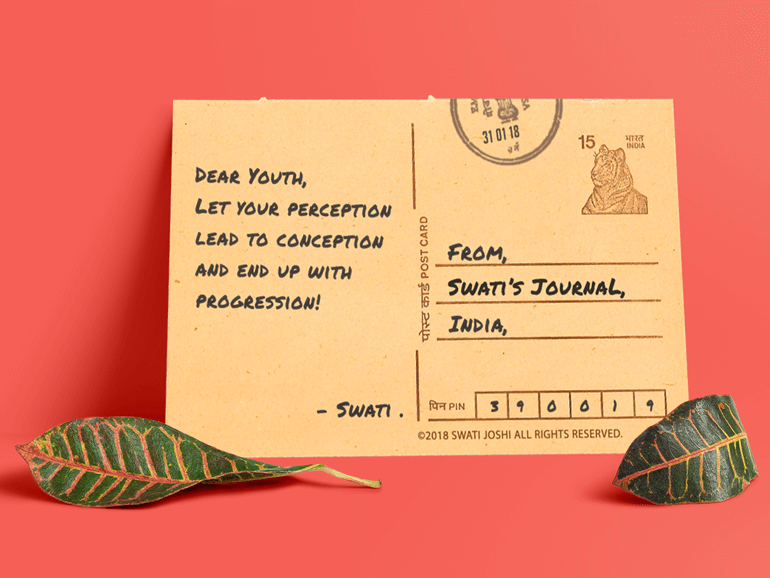 DEAR YOUTH,
LET YOUR PERCEPTION
LEAD TO CONCEPTION
AND END UP WITH
PROGRESSION!
- SWATI .
31 01 18
15 भारत
INDIA
पोस्ट कार्ड POST CARD
FROM,
SWATI'S JOURNAL,
INDIA,
पिन PIN 3 9 0 0 1 9
©2018 SWATI JOSHI ALL RIGHTS RESERVED.